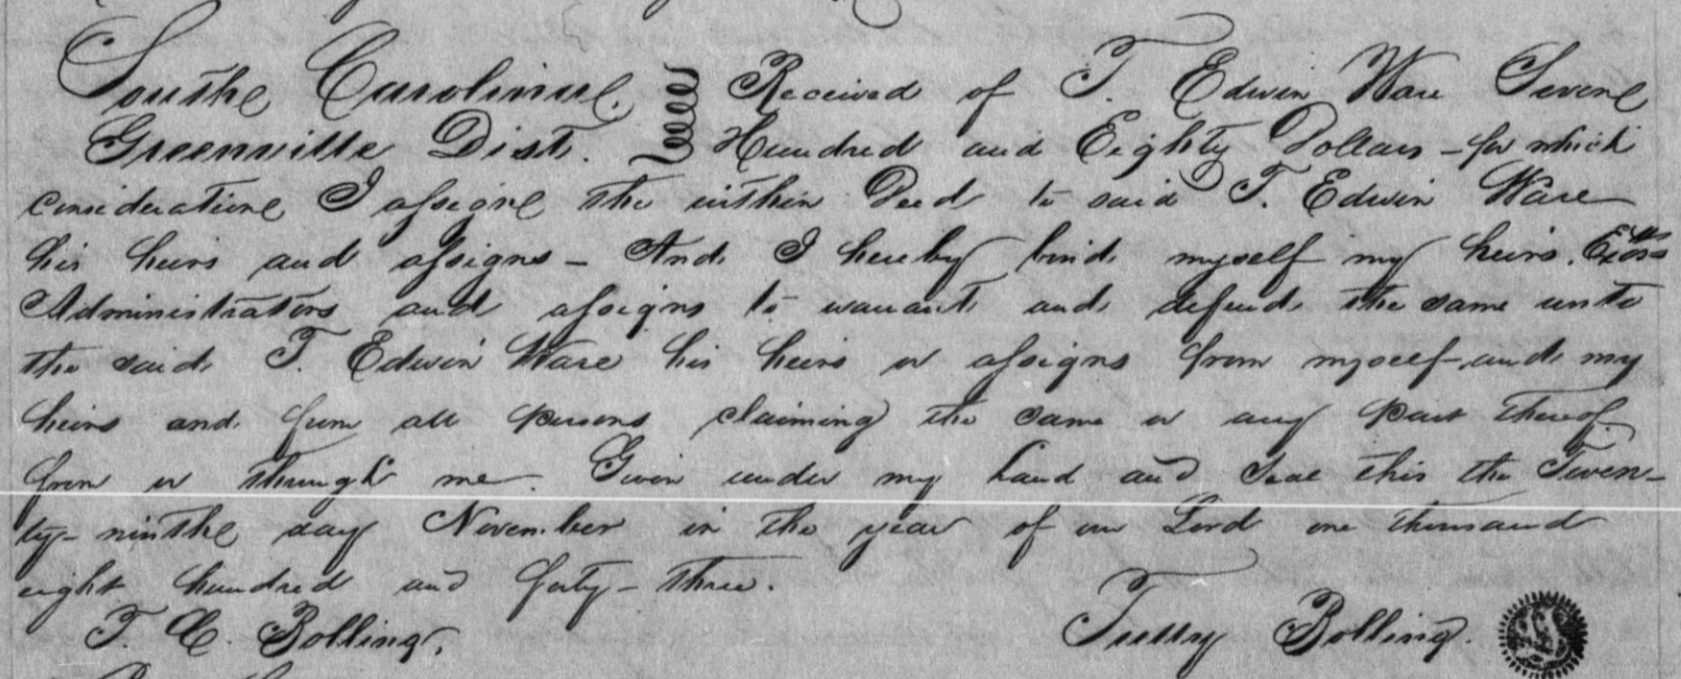 South Carolina. Received of T. Edwin Ware Seven
Greenville Dist. Hundred and Eighty Dollars - for which
consideration I assign the within Deed to said T. Edwin Ware
his heirs and assigns - And I hereby bind myself my heirs. Exors
Administrators and assigns to warrant and defend the same unto
the said T. Edwin Ware his heirs or assigns from myself and my
heirs and from all persons claiming the same or any part thereof
from or through me. Given under my hand and Seal this the Twen-
ty-ninth day November in the year of our Lord one thousand
eight hundred and forty-three.
T. C. Bolling. Tully Bolling.